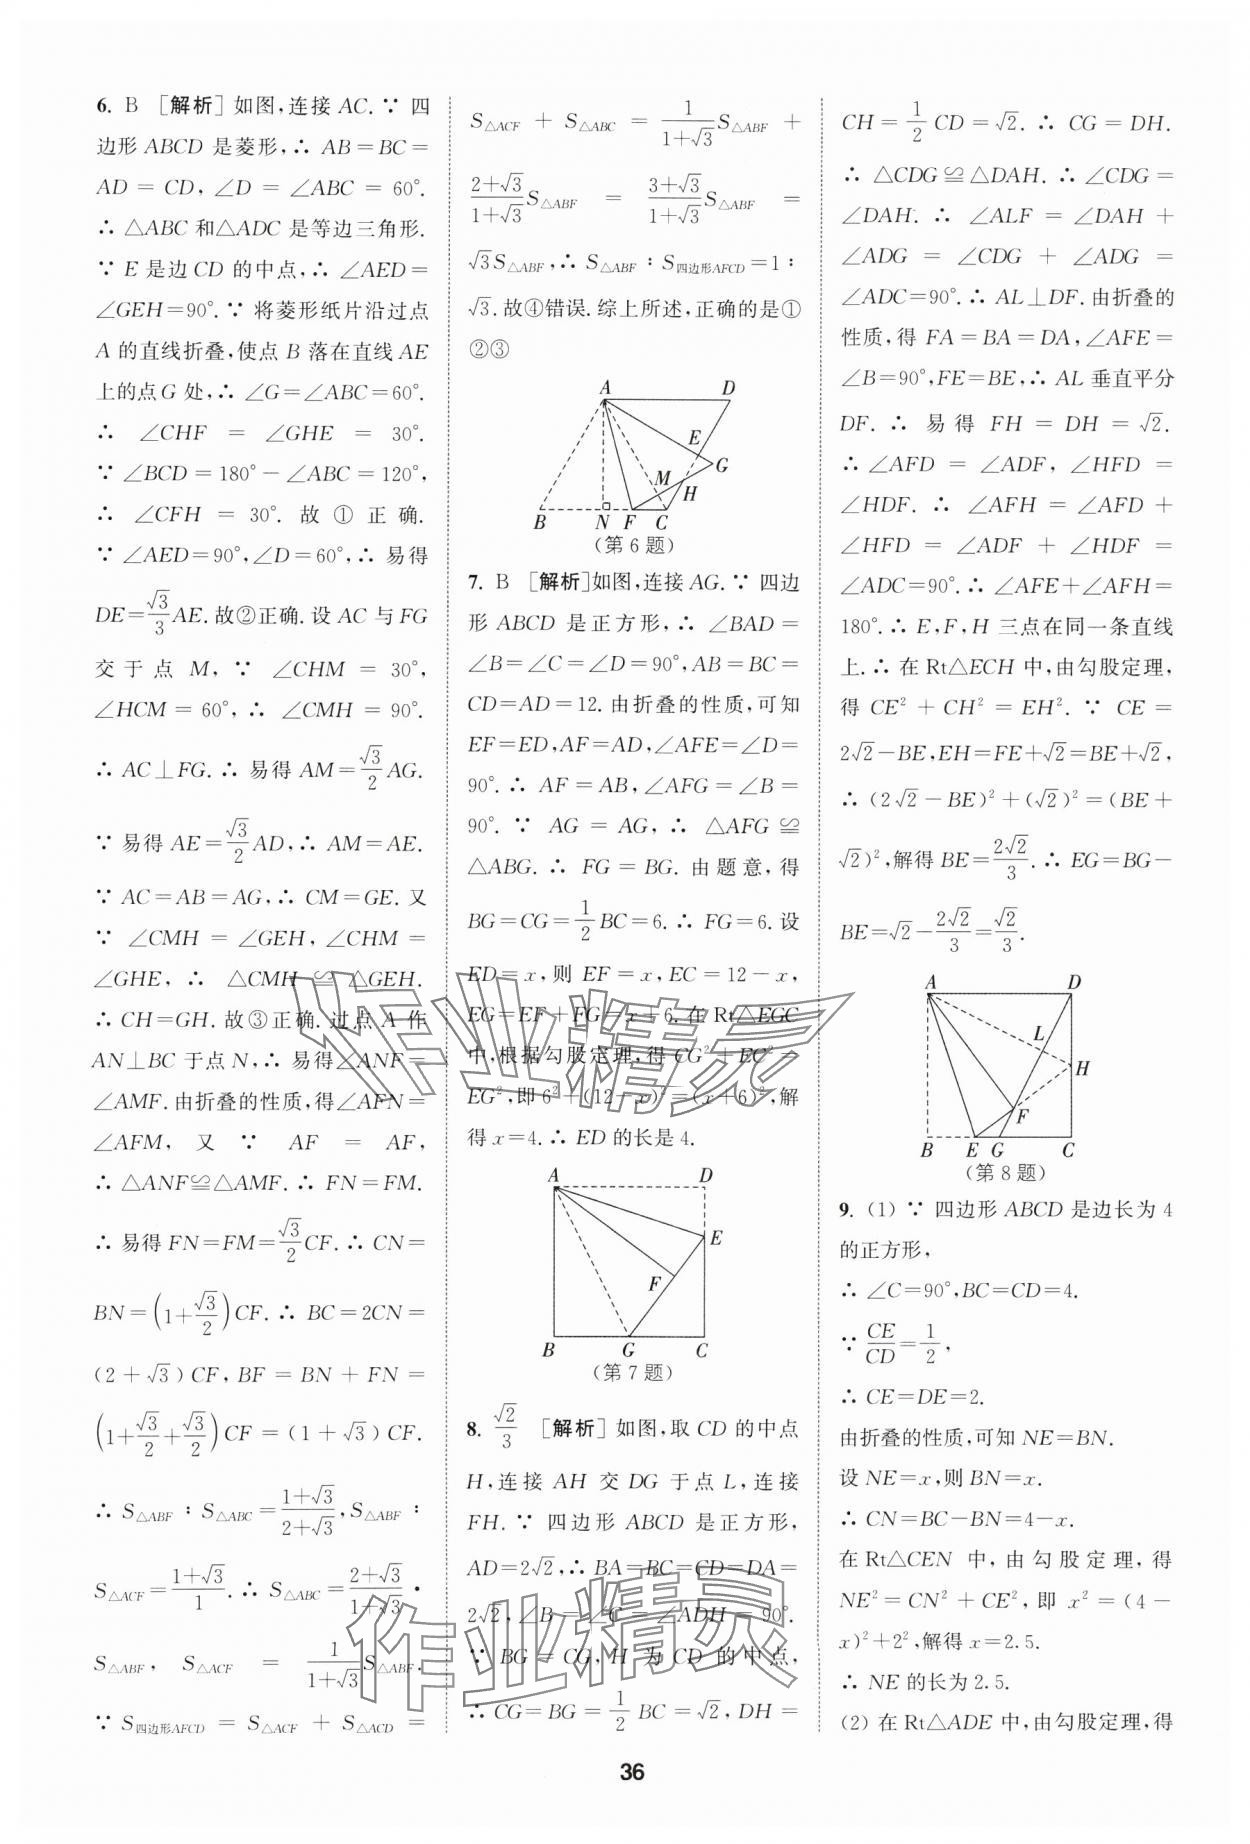 6. B [解析]如图,连接 AC.∵ 四
边形 ABCD 是菱形,∴ AB=BC=
AD=CD,∠D=∠ABC=60°.
∴ △ABC 和△ADC 是等边三角形.
∵ E 是边 CD 的中点,∴ ∠AED=
∠GEH=90°.∵ 将菱形纸片沿过点
A 的直线折叠,使点 B 落在直线 AE
上的点 G 处,∴ ∠G=∠ABC=60°.
∴ ∠CHF=∠GHE=30°.
∵ ∠BCD=180°-∠ABC=120°,
∴ ∠CFH=30°.故①正确.
∵ ∠AED=90°,∠D=60°,∴ 易得
DE=√3/3 AE.故②正确.设 AC 与 FG
交于点 M,∵ ∠CHM=30°,
∠HCM=60°,∴ ∠CMH=90°.
∴ AC⊥FG.∴ 易得 AM=√3/2 AG.
∵ 易得 AE=√3/2 AD,∴ AM=AE.
∵ AC=AB=AG,∴ CM=GE.又
∵ ∠CMH=∠GEH,∠CHM=
∠GHE,∴ △CMH≌△GEH.
∴ CH=GH.故③正确.过点 A 作
AN⊥BC 于点 N,∴ 易得∠ANF=
∠AMF.由折叠的性质,得∠AFN=
∠AFM,又∵ AF=AF,
∴ △ANF≌△AMF.∴ FN=FM.
∴ 易得 FN=FM=√3/2 CF.∴ CN=
BN=(1+√3/2)CF.∴ BC=2CN=
(2+√3)CF,BF=BN+FN=
(1+√3/2+√3/2)CF=(1+√3)CF.
∴ S△ABF : S△ABC=(1+√3)/(2+√3),S△ABF :
S△ACF=(1+√3)/1.∴ S△ABC=(2+√3)/(1+√3)·
S△ABF,S△ACF=1/(1+√3) S△ABF.
∵ S四边形AFCD=S△ACF+S△ACD=
S△ACF+S△ABC=1/(1+√3) S△ABF+
(2+√3)/(1+√3) S△ABF=(3+√3)/(1+√3) S△ABF=
√3S△ABF,∴ S△ABF : S四边形AFCD=1 :
√3.故④错误.综上所述,正确的是①
②③
A D
E
G
M
H
B N F C
(第 6 题)
7. B [解析]如图,连接 AG.∵ 四边
形 ABCD 是正方形,∴ ∠BAD=
∠B=∠C=∠D=90°,AB=BC=
CD=AD=12.由折叠的性质,可知
EF=ED,AF=AD,∠AFE=∠D=
90°.∴ AF=AB,∠AFG=∠B=
90°.∵ AG=AG,∴ △AFG≌
△ABG.∴ FG=BG.由题意,得
BG=CG=1/2 BC=6.∴ FG=6.设
ED=x,则 EF=x,EC=12-x,
EG=EF+FG=x+6.在 Rt△EGC
中,根据勾股定理,得 CG²+EC²=
EG²,即 6²+(12-x)²=(x+6)²,解
得 x=4.∴ ED 的长是 4.
A D
E
F
B G C
(第 7 题)
8. √2/3 [解析]如图,取 CD 的中点
H,连接 AH 交 DG 于点 L,连接
FH.∵ 四边形 ABCD 是正方形,
AD=2√2,∴ BA=BC=CD=DA=
2√2,∠B=∠C=∠ADH=90°.
∵ BG=CG,H 为 CD 的中点,
∴ CG=BG=1/2 BC=√2,DH=
CH=1/2 CD=√2.∴ CG=DH.
∴ △CDG≌△DAH.∴ ∠CDG=
∠DAH.∴ ∠ALF=∠DAH+
∠ADG=∠CDG+∠ADG=
∠ADC=90°.∴ AL⊥DF.由折叠的
性质,得 FA=BA=DA,∠AFE=
∠B=90°,FE=BE,∴ AL 垂直平分
DF.∴ 易得 FH=DH=√2.
∴ ∠AFD=∠ADF,∠HFD=
∠HDF.∴ ∠AFH=∠AFD+
∠HFD=∠ADF+∠HDF=
∠ADC=90°.∴ ∠AFE+∠AFH=
180°.∴ E,F,H 三点在同一条直线
上.∴ 在 Rt△ECH 中,由勾股定理,
得 CE²+CH²=EH².∵ CE=
2√2-BE,EH=FE+√2=BE+√2,
∴ (2√2-BE)²+(√2)²=(BE+
√2)²,解得 BE=2√2/3.∴ EG=BG-
BE=√2-2√2/3=√2/3.
A D
L
H
F
B E G C
(第 8 题)
9. (1) ∵ 四边形 ABCD 是边长为 4
的正方形,
∴ ∠C=90°,BC=CD=4.
∵ CE/CD=1/2,
∴ CE=DE=2.
由折叠的性质,可知 NE=BN.
设 NE=x,则 BN=x.
∴ CN=BC-BN=4-x.
在 Rt△CEN 中,由勾股定理,得
NE²=CN²+CE²,即 x²=(4-
x)²+2²,解得 x=2.5.
∴ NE 的长为 2.5.
(2) 在 Rt△ADE 中,由勾股定理,得
作业精灵
作业精灵
36